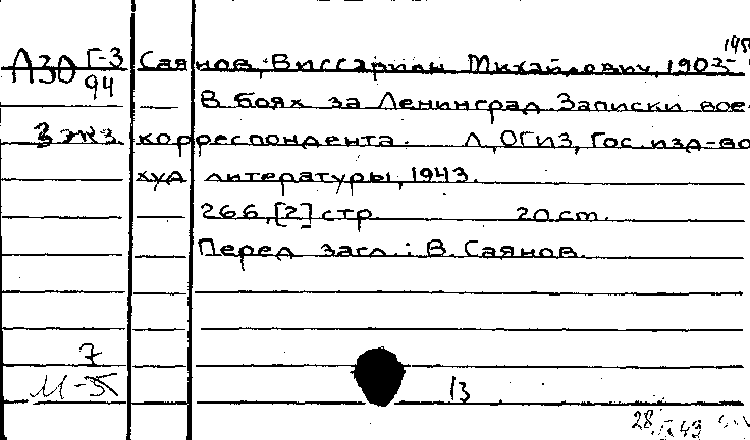 Л30 Г-3 Саянов, Виссарион Михайлович, 1903-
94
В боях за Ленинград. Записки вое-
3 экз. корреспондента. Л, ОГИЗ, Гос. изд-во
худ литературы, 1943.
266, [2] стр. 20 см.
Перед загл.: В. Саянов.
7
13